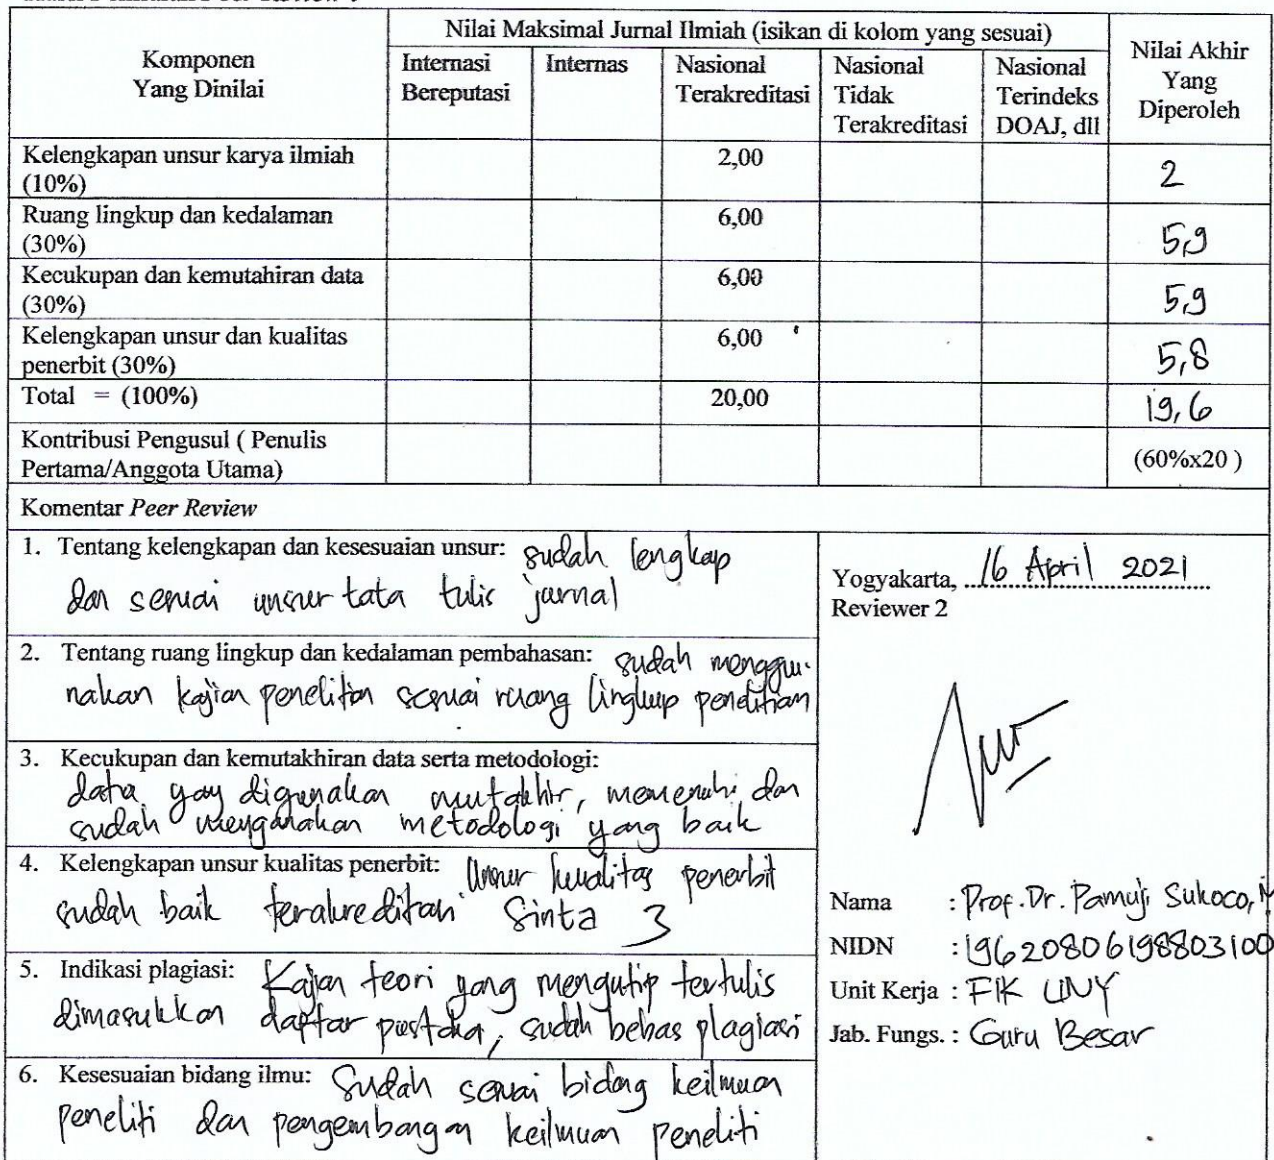 Nilai Maksimal Jurnal Ilmiah (isikan di kolom yang sesuai)
Komponen
Yang Dinilai
Internasi
Bereputasi
Internas
Nasional
Terakreditasi
Nasional
Tidak
Terakreditasi
Nasional
Terindeks
DOAJ, dll
Nilai Akhir
Yang
Diperoleh
Kelengkapan unsur karya ilmiah
(10%)
2,00
2
Ruang lingkup dan kedalaman
(30%)
6,00
5,9
Kecukupan dan kemutahiran data
(30%)
6,00
5,9
Kelengkapan unsur dan kualitas
penerbit (30%)
6,00
5,8
Total = (100%)
20,00
19,6
Kontribusi Pengusul ( Penulis
Pertama/Anggota Utama)
(60%x20 )
Komentar Peer Review
1. Tentang kelengkapan dan kesesuaian unsur: sudah lengkap
dan sesuai unsur tata tulis jurnal
2. Tentang ruang lingkup dan kedalaman pembahasan: sudah menggu-
nakan kajian penelitian sesuai ruang lingkup penelitian
3. Kecukupan dan kemutakhiran data serta metodologi:
data yang digunakan mutakhir, memenuhi dan
sudah menggunakan metodologi yang baik
4. Kelengkapan unsur kualitas penerbit: Unsur kualitas penerbit
sudah baik terakreditasi Sinta 3
5. Indikasi plagiasi: Kajian teori yang mengutip tertulis
dimasukkan daftar pustaka, sudah bebas plagiasi
6. Kesesuaian bidang ilmu: Sudah sesuai bidang keilmuan
peneliti dan pengembangan keilmuan peneliti
Yogyakarta, 16 April 2021
Reviewer 2
Nama : Prof. Dr. Pamuji Sukoco,
NIDN : 19620806198803100
Unit Kerja : FIK UNY
Jab. Fungs. : Guru Besar